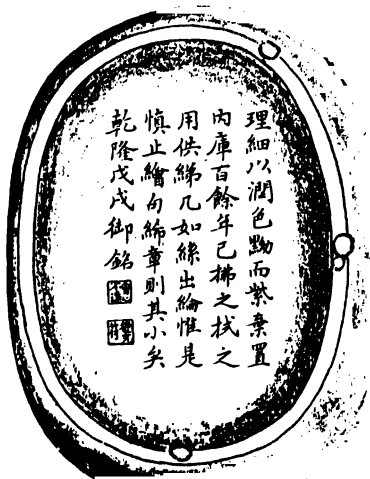 理細以潤色黝而紫棄置
內庫百餘年已拂之拭之
用供綈几如絲出綸惟是
慎止繪句絺章則其小矣
乾隆戊戌御銘